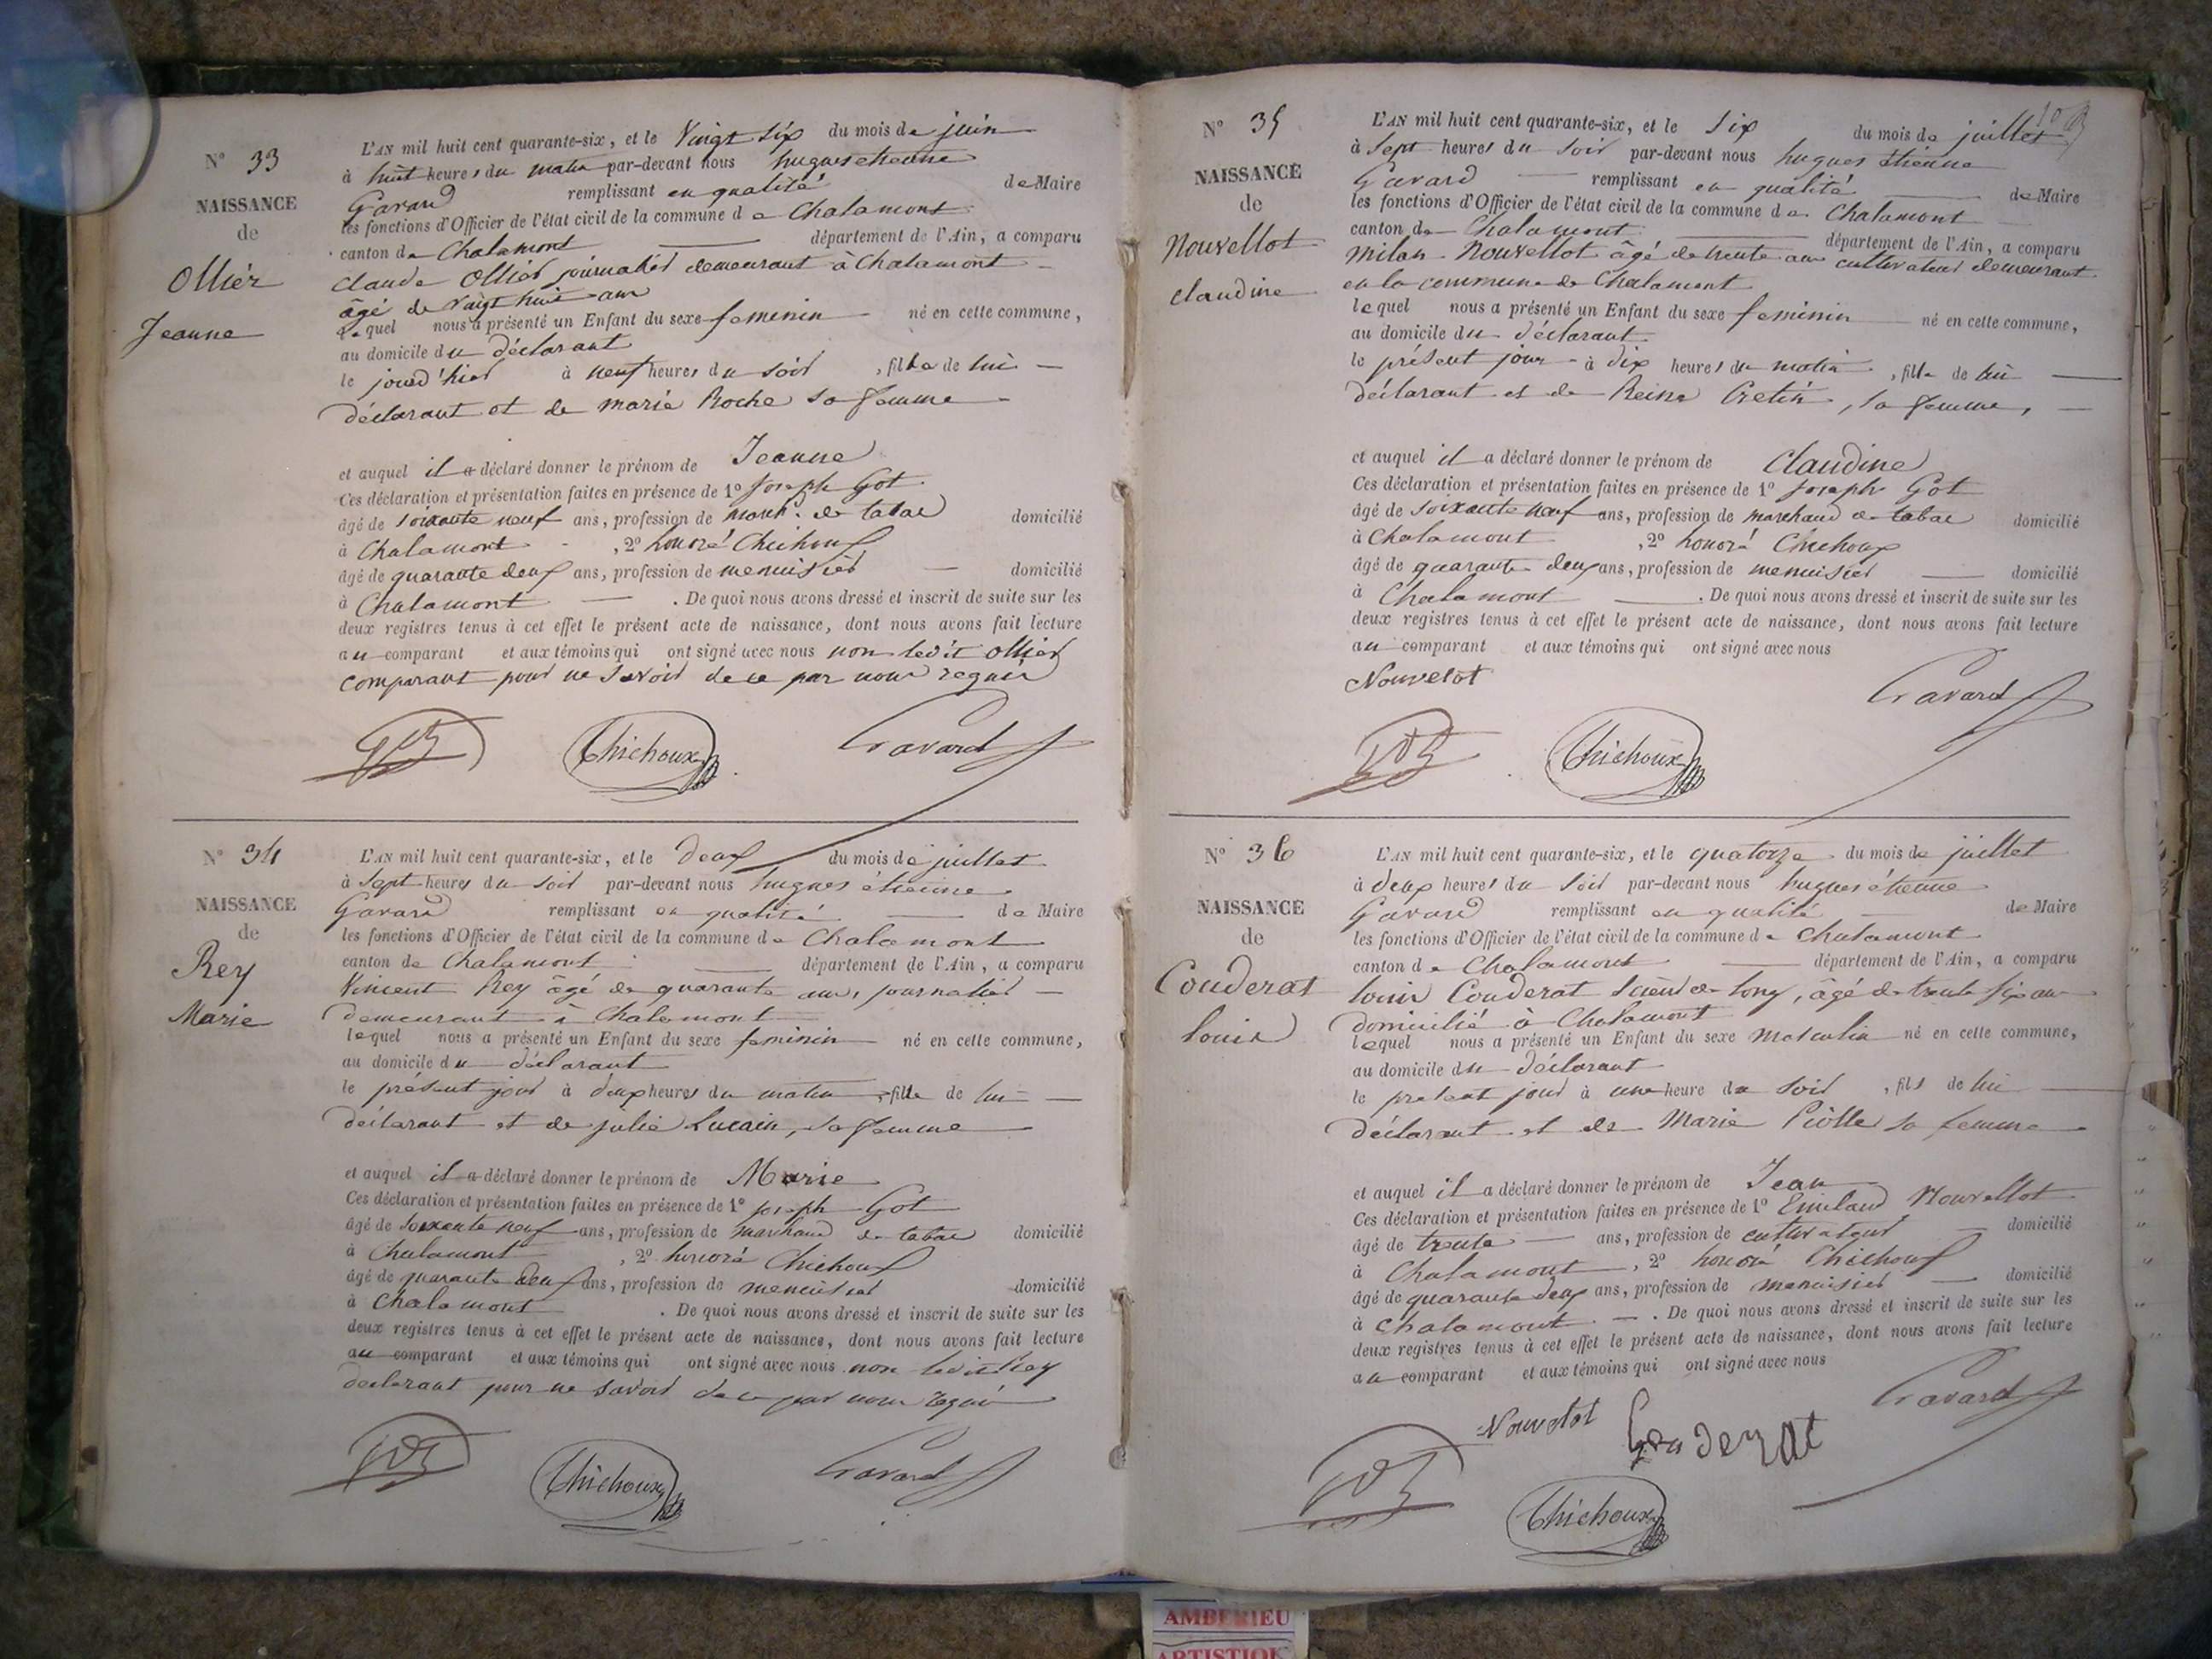 N° 33
NAISSANCE
de
Ollier
Jeanne
L'AN mil huit cent quarante-six, et le Vingt Six du mois de juin
à huit heures du matin par-devant nous hugues etienne
Gavard remplissant en qualité de Maire
les fonctions d'Officier de l'état civil de la commune de Chalamont
canton de Chalamont département de l'Ain, a comparu
Claude Ollier journalier demeurant à Chalamont
âgé de vingt huit ans
lequel nous a présenté un Enfant du sexe feminin né en cette commune,
au domicile du déclarant
le jour d'hier à neuf heures du soir, fille de lui
déclarant et de marie Roche sa femme
et auquel il a déclaré donner le prénom de Jeanne
Ces déclaration et présentation faites en présence de 1° Joseph Got
âgé de soixante neuf ans, profession de march. de tabac domicilié
à Chalamont, 2° honoré Chichoux
âgé de quarante deux ans, profession de menuisier domicilié
à Chalamont. De quoi nous avons dressé et inscrit de suite sur les
deux registres tenus à cet effet le présent acte de naissance, dont nous avons fait lecture
au comparant et aux témoins qui ont signé avec nous non ledit Ollier
comparant pour ne savoir de ce par nous requis
Got Chichoux Gavard
N° 34
NAISSANCE
de
Rey
Marie
L'AN mil huit cent quarante-six, et le deux du mois de juillet
à sept heures du soir par-devant nous hugues étienne
Gavard remplissant en qualité de Maire
les fonctions d'Officier de l'état civil de la commune de Chalamont
canton de Chalamont département de l'Ain, a comparu
Vincent Rey âgé de quarante ans, journalier
demeurant à Chalamont
lequel nous a présenté un Enfant du sexe feminin né en cette commune,
au domicile du déclarant
le présent jour à deux heures du matin, fille de lui
déclarant et de julie Lucain, sa femme
et auquel il a déclaré donner le prénom de Marie
Ces déclaration et présentation faites en présence de 1° joseph Got
âgé de soixante neuf ans, profession de marchand de tabac domicilié
à Chalamont, 2° honoré Chichoux
âgé de quarante deux ans, profession de menuisier domicilié
à Chalamont. De quoi nous avons dressé et inscrit de suite sur les
deux registres tenus à cet effet le présent acte de naissance, dont nous avons fait lecture
au comparant et aux témoins qui ont signé avec nous non ledit Rey
déclarant pour ne savoir de ce par nous requis
Got Chichoux Gavard
N° 35
NAISSANCE
de
Nouvellot
claudine
L'AN mil huit cent quarante-six, et le Six du mois de juillet
à Sept heures du soir par-devant nous hugues étienne
Gavard remplissant en qualité de Maire
les fonctions d'Officier de l'état civil de la commune de Chalamont
canton de Chalamont département de l'Ain, a comparu
milan Nouvellot âgé de trente ans cultivateur demeurant
en la commune de Chalamont
lequel nous a présenté un Enfant du sexe feminin né en cette commune,
au domicile du déclarant
le présent jour à dix heures du matin, fille de lui
déclarant et de Reine Cretin, sa femme,
et auquel il a déclaré donner le prénom de Claudine
Ces déclaration et présentation faites en présence de 1° Joseph Got
âgé de soixante neuf ans, profession de marchand de tabac domicilié
à Chalamont, 2° honoré Chichoux
âgé de quarante deux ans, profession de menuisier domicilié
à Chalamont. De quoi nous avons dressé et inscrit de suite sur les
deux registres tenus à cet effet le présent acte de naissance, dont nous avons fait lecture
au comparant et aux témoins qui ont signé avec nous
Nouvelot Gavard
Got Chichoux
N° 36
NAISSANCE
de
Couderat
louis
L'AN mil huit cent quarante-six, et le quatorze du mois de juillet
à deux heures du soir par-devant nous hugues étienne
Gavard remplissant en qualité de Maire
les fonctions d'Officier de l'état civil de la commune de Chalamont
canton de Chalamont département de l'Ain, a comparu
louis Couderat scieur de long, âgé de trente six ans
domicilié à Chalamont
lequel nous a présenté un Enfant du sexe masculin né en cette commune,
au domicile du déclarant
le présent jour à une heure du soir, fils de lui
déclarant et de Marie Piolle sa femme
et auquel il a déclaré donner le prénom de Jean
Ces déclaration et présentation faites en présence de 1° Emiland Nouvellot
âgé de trente ans, profession de cultivateur domicilié
à Chalamont, 2° honoré Chichoux
âgé de quarante deux ans, profession de menuisier domicilié
à Chalamont. De quoi nous avons dressé et inscrit de suite sur les
deux registres tenus à cet effet le présent acte de naissance, dont nous avons fait lecture
au comparant et aux témoins qui ont signé avec nous
Gavard
Nouvelot Couderat
Got Chichoux
AMBERIEU